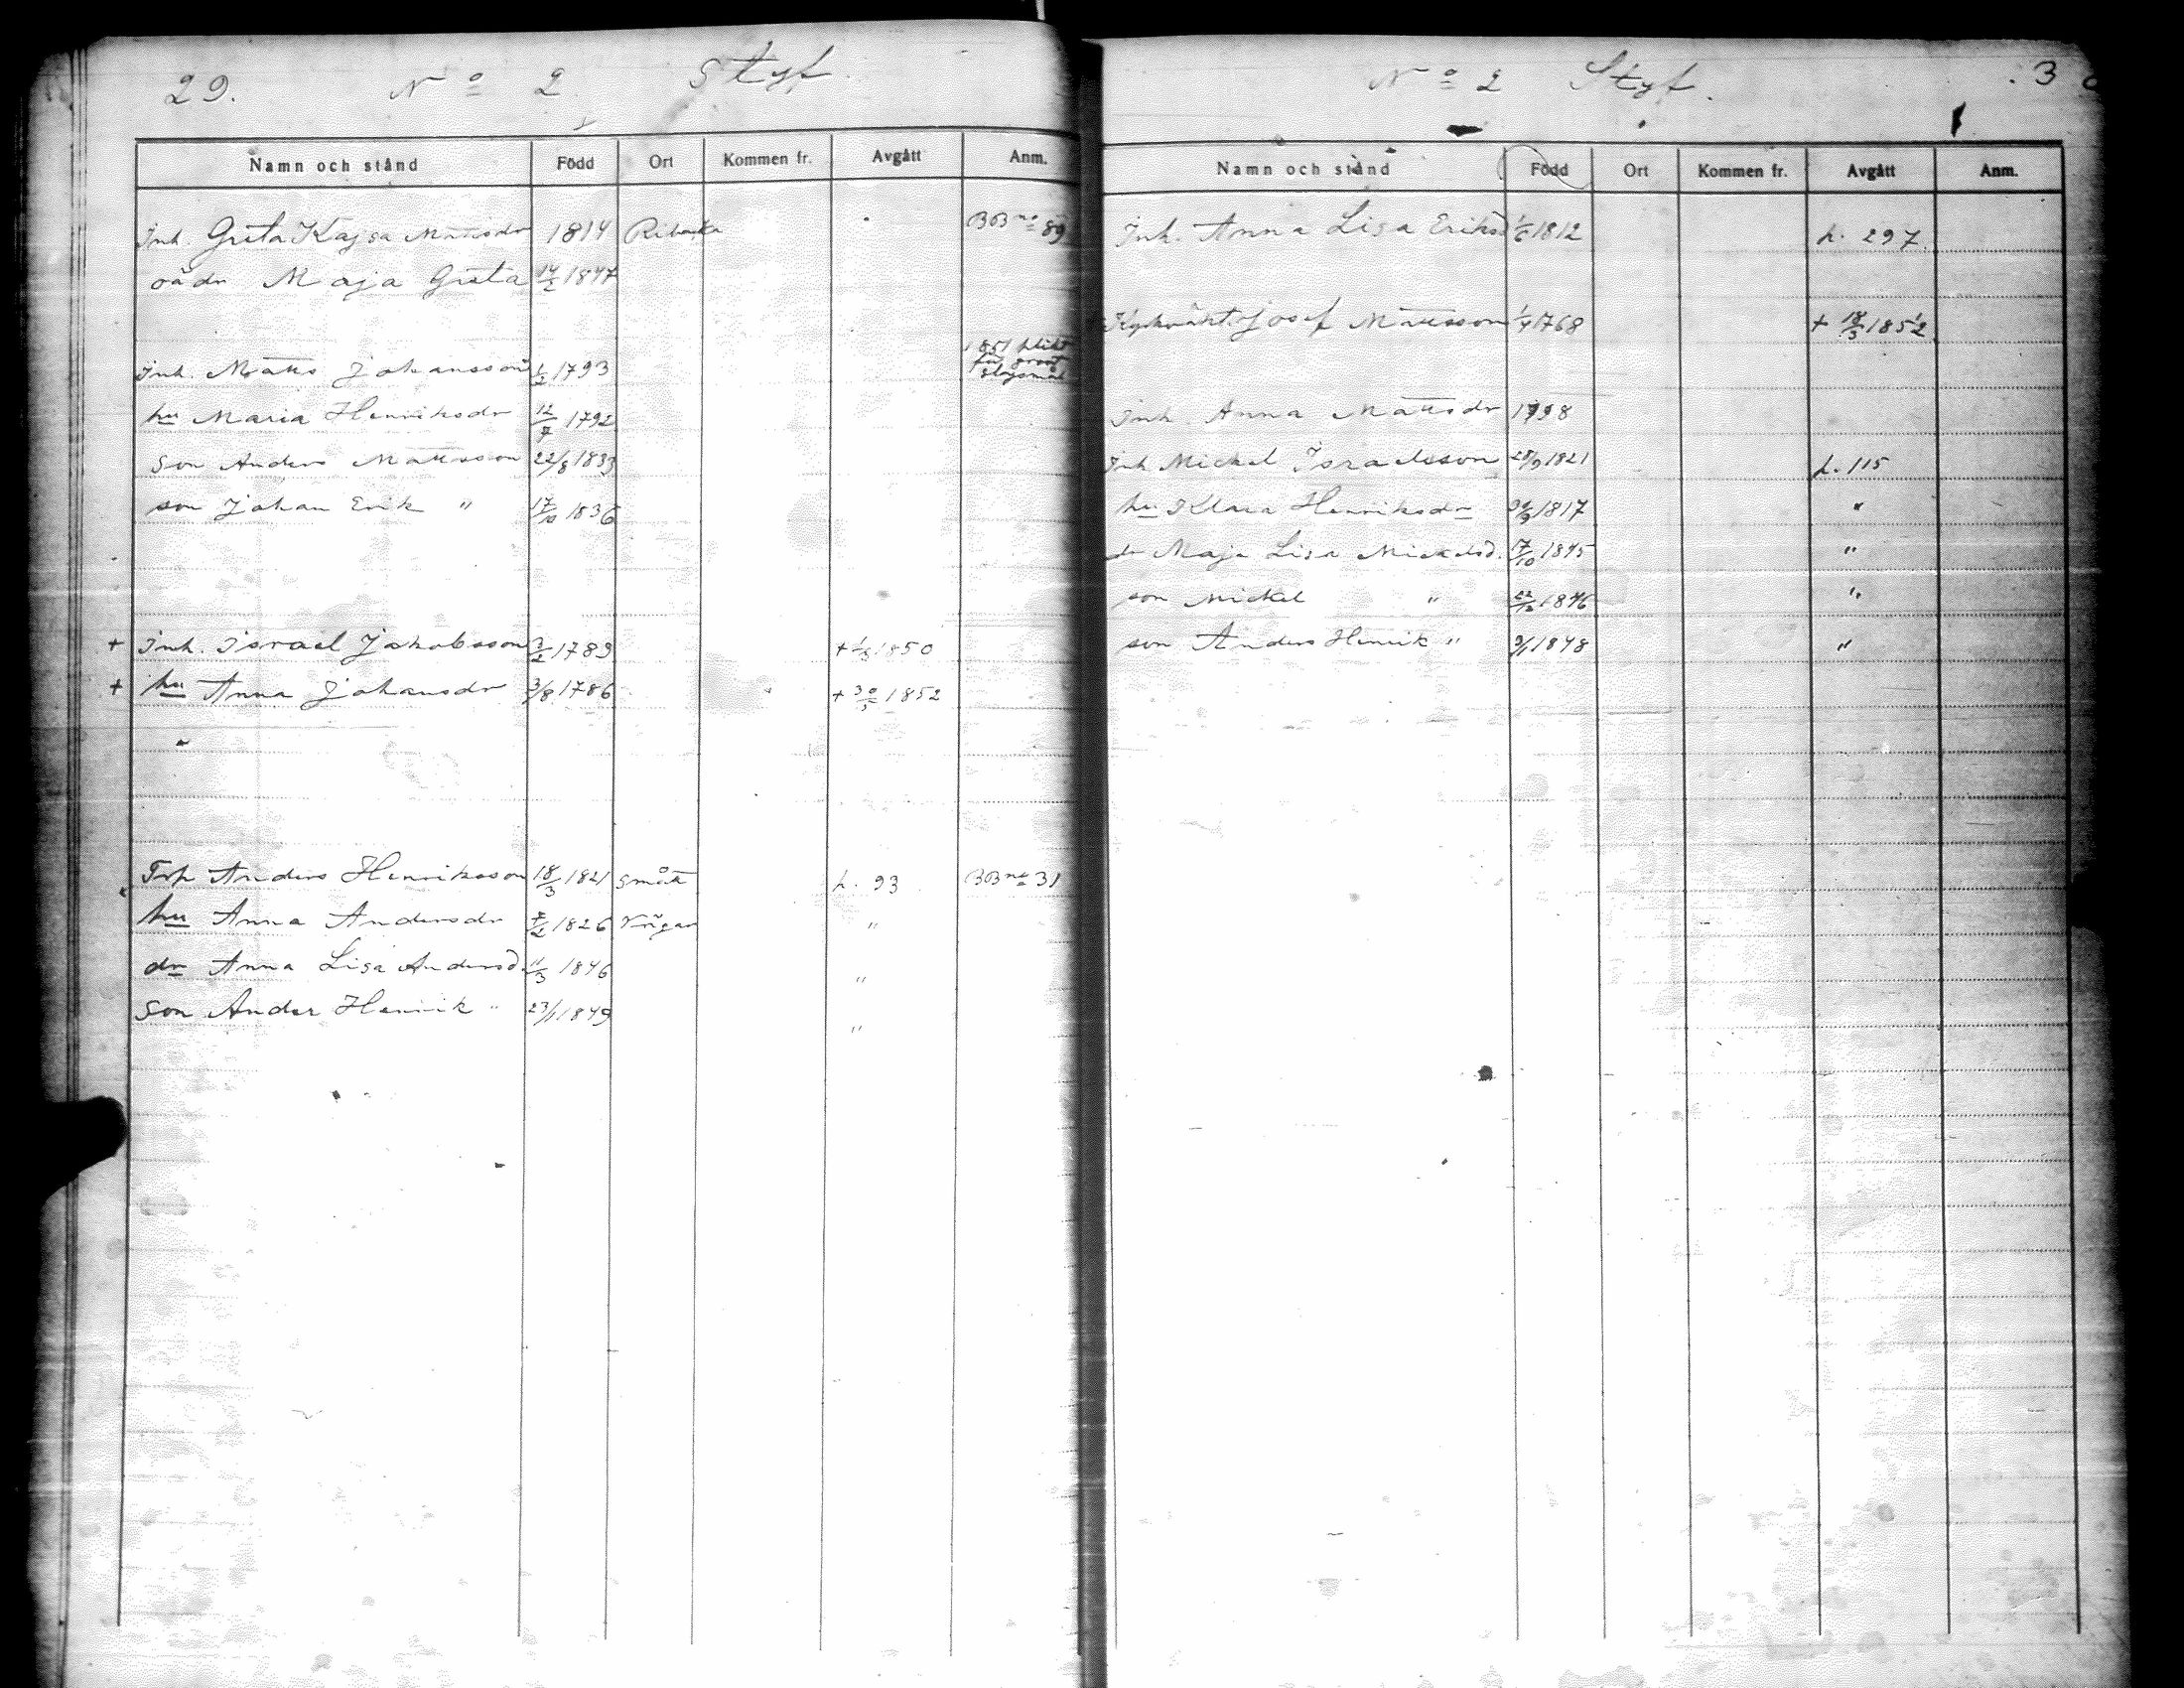 29. No 2 Styf.
Namn och stånd Född Ort Kommen fr. Avgått Anm.
Inh. Greta Kajsa Mattsdr 1814 BBno 89
oä dr Maja Greta 14/2 1847
1851 plikt
för groft
slagsmål
Inh. Matts Johansson 1/2 1793
hu Maria Henriksdr 12/7 1792
son Anders Mattsson 22/8 1833
son Johan Erik " 17/10 1836
+ Inh. Israel Jakobsson 3/2 1789 + 1850
+ hu Anna Johansdr 3/8 1786 + 1852
Trp Anders Henriksson 18/3 1821 Smått h. 93 BBno 31
hu Anna Andersdr 1826 "
dr Anna Lisa Andersd. 11/3 1846 "
son Ander Henrik " 23/1 1849 "
No 2 Styf. 3
Namn och stånd Född Ort Kommen fr. Avgått Anm.
Inh. Anna Lisa Eriksd 1/6 1812 h. 297
Josef Mattsson 1/4 1768 + 18/3 1852
Inh. Anna Mattsdr 1798
Inh Mickel Israelsson 28/9 1821 h. 115
hu Klara Henriksdr 1817 "
dr Maja Lisa Mickelsd. 17/10 1845 "
son Mickel " 22/12 1846 "
son Anders Henrik " 1848 "